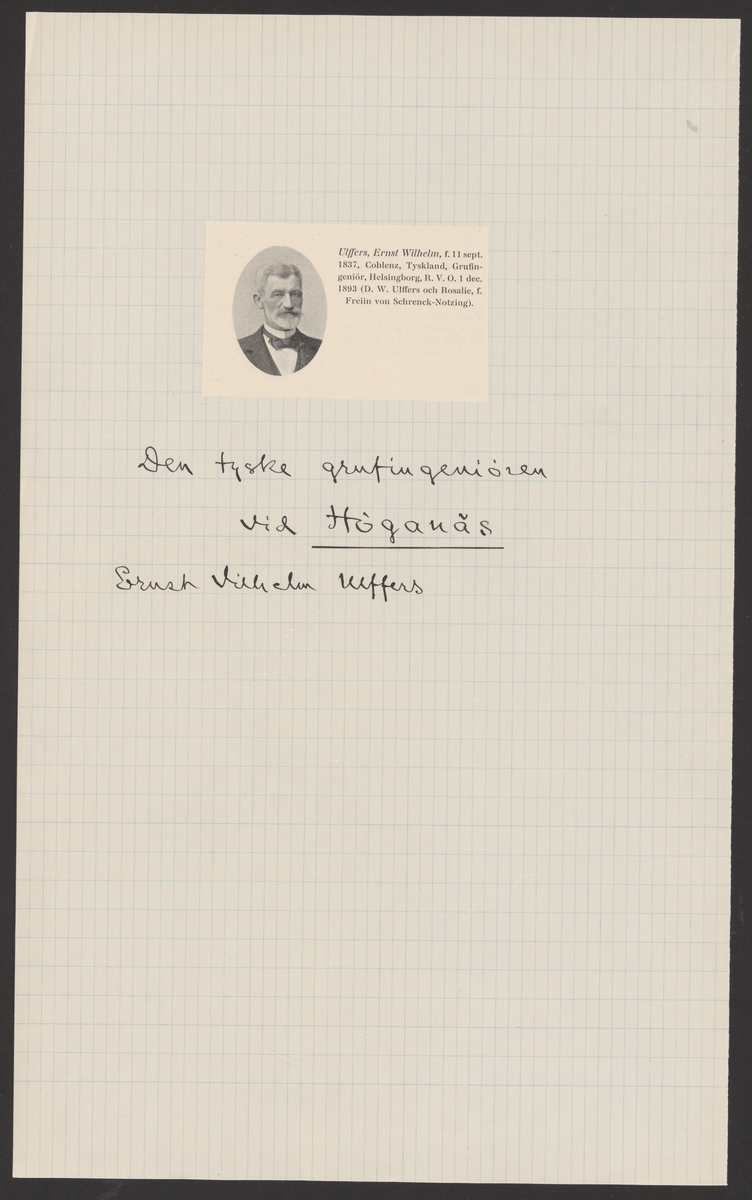 Ulffers, Ernst Wilhelm, f. 11 sept.
1837, Coblenz, Tyskland, Grufin-
geniör, Helsingborg, R. V. O. 1 dec.
1893 (D. W. Ulffers och Rosalie, f.
Freiin von Schrenck-Notzing).
Den tyske grufingeniören
vid Höganäs
Ernst Vilhelm Ulffers